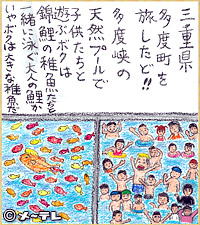 三重県
多度町を
旅したど!!
多度峡の
天然プールで
遊ぶボクは
子供たちと
錦鯉の稚魚たちと
一緒に泳ぐ大人の鯉か
いやボクは大きな稚魚だ
©メーテレ